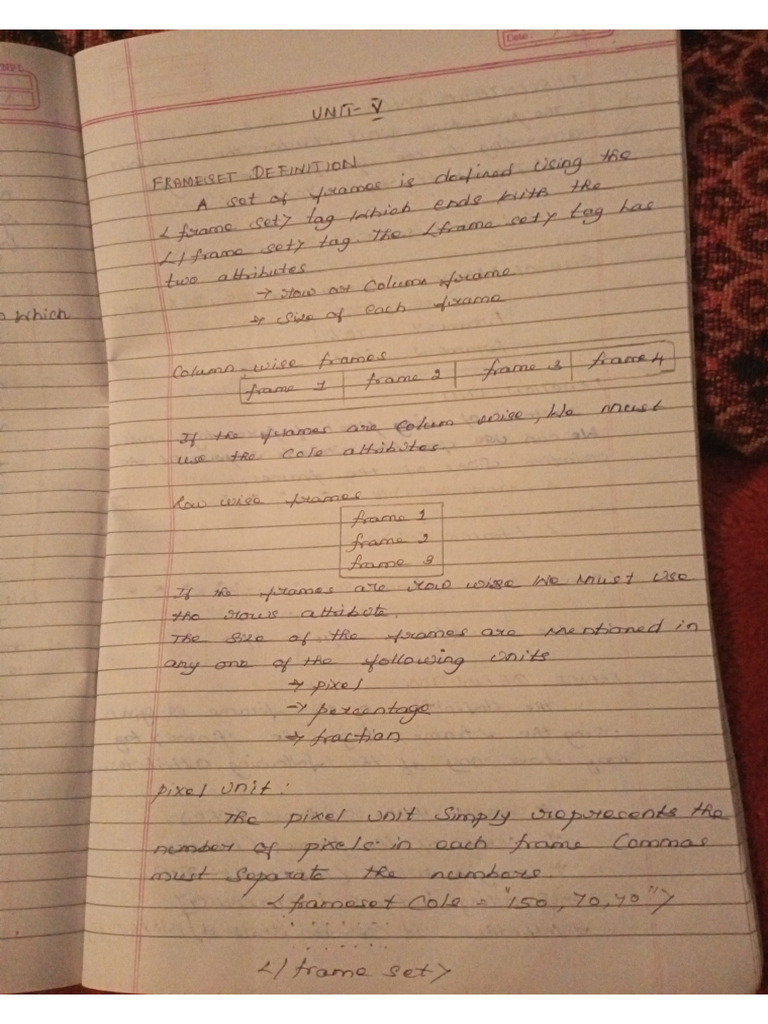 Date :
UNIT - V
FRAMESET DEFINITION
A set of frames is defined using the
<frame set> tag which ends with the
</frame set> tag. The <frame set> tag has
two attributes
→ row or column frame
→ size of each frame
which
Column-wise frames
frame 1 | frame 2 | frame 3 | frame 4
If the frames are column wise, we must
use the Cole attributes.
Row wise frames
frame 1
frame 2
frame 3
If the frames are row wise we must use
the rows attribute.
The size of the frames are mentioned in
any one of the following units
→ pixel
→ percentage
→ fraction
pixel unit :
The pixel unit simply represents the
number of pixels in each frame Commas
must separate the numbers.
<frameset Cole = "150, 70, 70">
. . . . . .
. . . . . .
</frame set>